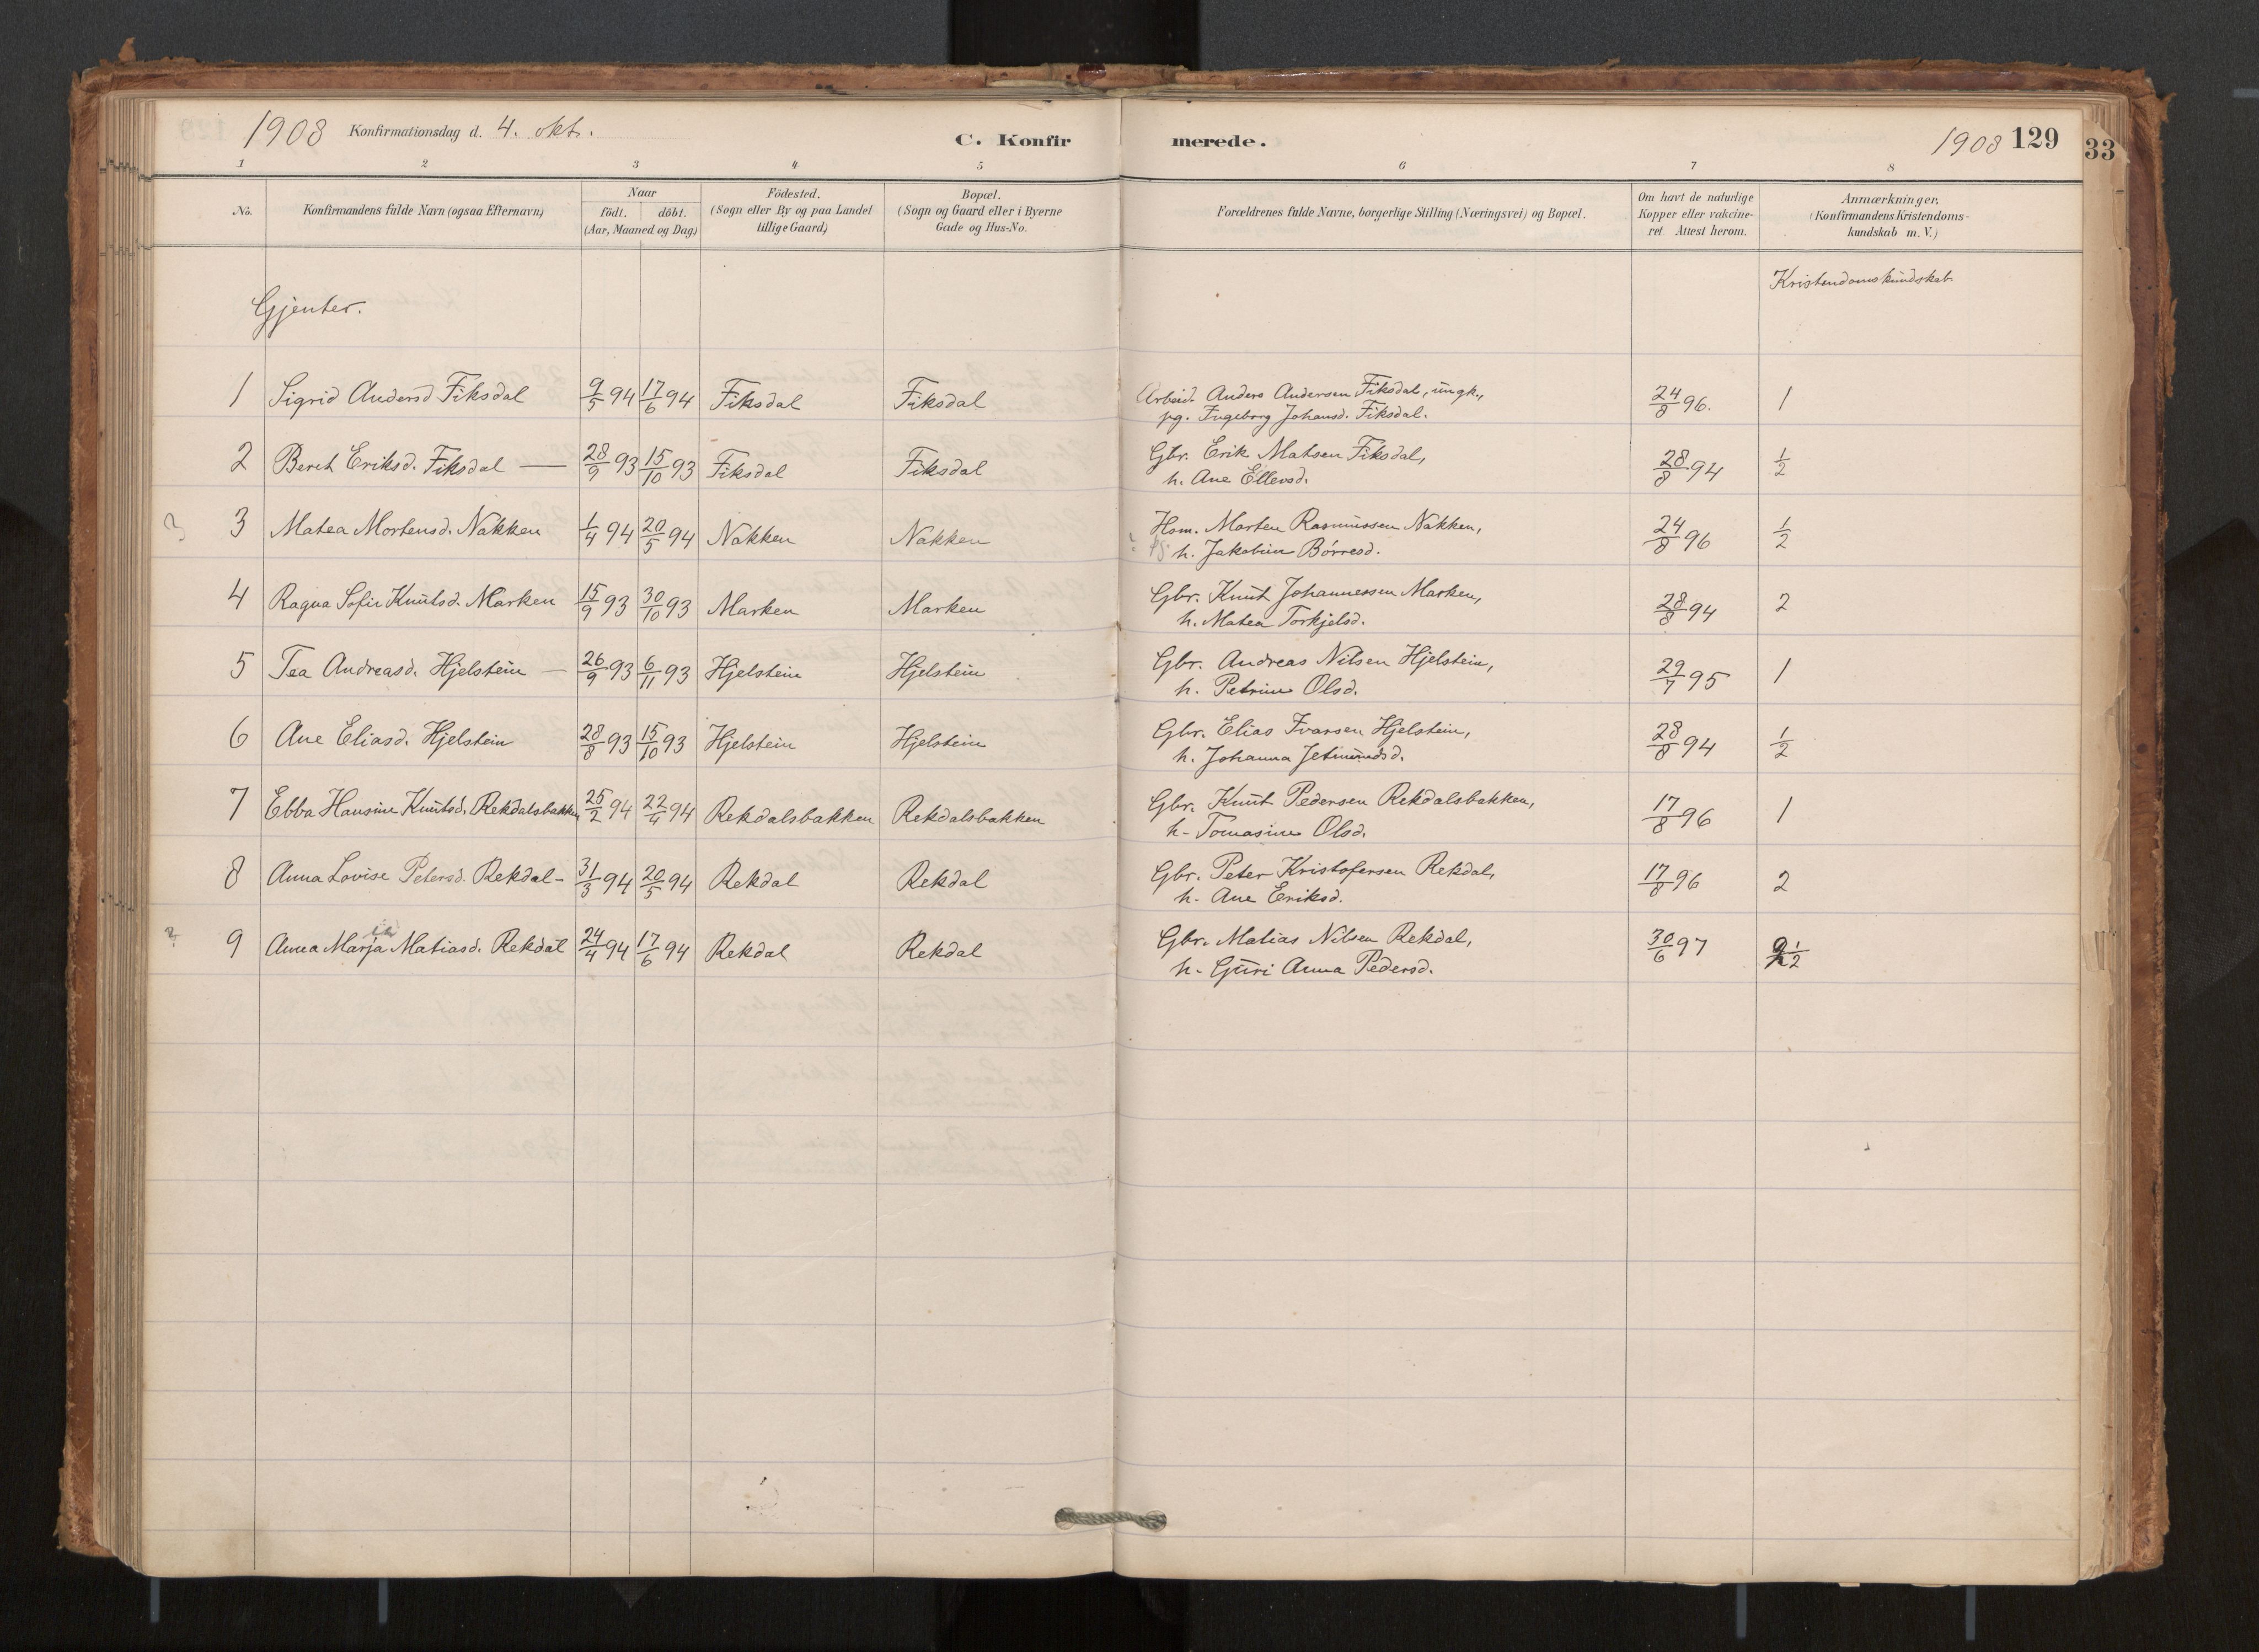 1908 Konfirmationsdag d. 4. okt. C. Konfir merede. 1908 129
33
1 2 3 4 5 6 7 8
No. Konfirmandens fulde Navn (ogsaa Efternavn) Naar födt. döbt. (Aar, Maaned og Dag) Födested. (Sogn eller By og paa Landet tillige Gaard) Bopæl. (Sogn og Gaard eller i Byerne Gade og Hus-No. Forældrenes fulde Navne, borgerlige Stilling (Næringsvei) og Bopæl. Om havt de naturlige Kopper eller vakcineret. Attest herom. Anmærkninger, (Konfirmandens Kristendoms-kundskab m. V.)
Kristendomskundskab
Gjenter.
1 Sigrid Andersd Fiksdal 9/5 94 17/6 94 Fiksdal Fiksdal Arbeid. Anders Andersen Fiksdal, ungk., 24/8 96. 1
pg. Ingeborg Johansd. Fiksdal.
2 Beret Eriksd. Fiksdal — 28/9 93 15/10 93 Fiksdal Fiksdal Gbr. Erik Matsen Fiksdal, 28/8 94 1/2
h. Ane Ellevsd.
? 3 Matea Mortensd. Nakken 1/4 94 20/5 94 Nakken Nakken Hsm. Morten Rasmussen Nakken, 24/8 96 1/2
h. Jakobine Börresd.
4 Ragna Sofie Knutsd. Marken 15/9 93 30/10 93 Marken Marken Gbr. Knut Johannessen Marken, 28/8 94 2
h. Matea Torkjelsd.
5 Tea Andreasd. Hjelstein — 26/9 93 6/11 93 Hjelstein Hjelstein Gbr. Andreas Nilsen Hjelstein, 29/7 95 1
h. Petrine Olsd.
6 Ane Eliasd. Hjelstein 28/8 93 15/10 93 Hjelstein Hjelstein Gbr. Elias Ivarsen Hjelstein, 28/8 94 1/2
h. Johanna Jetmundsd.
7 Ebba Hansine Knutsd. Rekdalsbakken 25/2 94 22/4 94 Rekdalsbakken Rekdalsbakken Gbr. Knut Pedersen Rekdalsbakken, 17/8 96 1
h. Tomasine Olsd.
8 Anna Lovise Petersd. Rekdal - 31/3 94 20/5 94 Rekdal Rekdal Gbr. Peter Kristofersen Rekdal, 17/8 96 2
h. Ane Eriksd.
? 9 Anna Marja Matiasd. Rekdal 24/4 94 17/6 94 Rekdal Rekdal Gbr. Matias Nilsen Rekdal, 30/6 97 1/2
h. Guri Anna Pedersd.